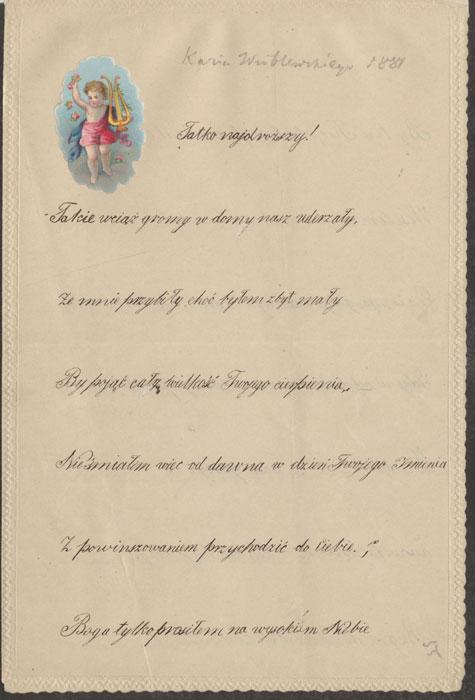 Kazia Wróblewskiego 1881
Tatko najdroższy!
Takie wciąż gromy w domy nasz uderzały,
Że mnie przybiły choć byłem zbyt mały
By pojąć całą wielkość Twojego cierpienia,
Nieśmiałem więc od dawna w dzień Twojego Imienia
Z powinszowaniem przychodzić do Ciebie.
Boga tylko prosiłem na wysokiem Niebie